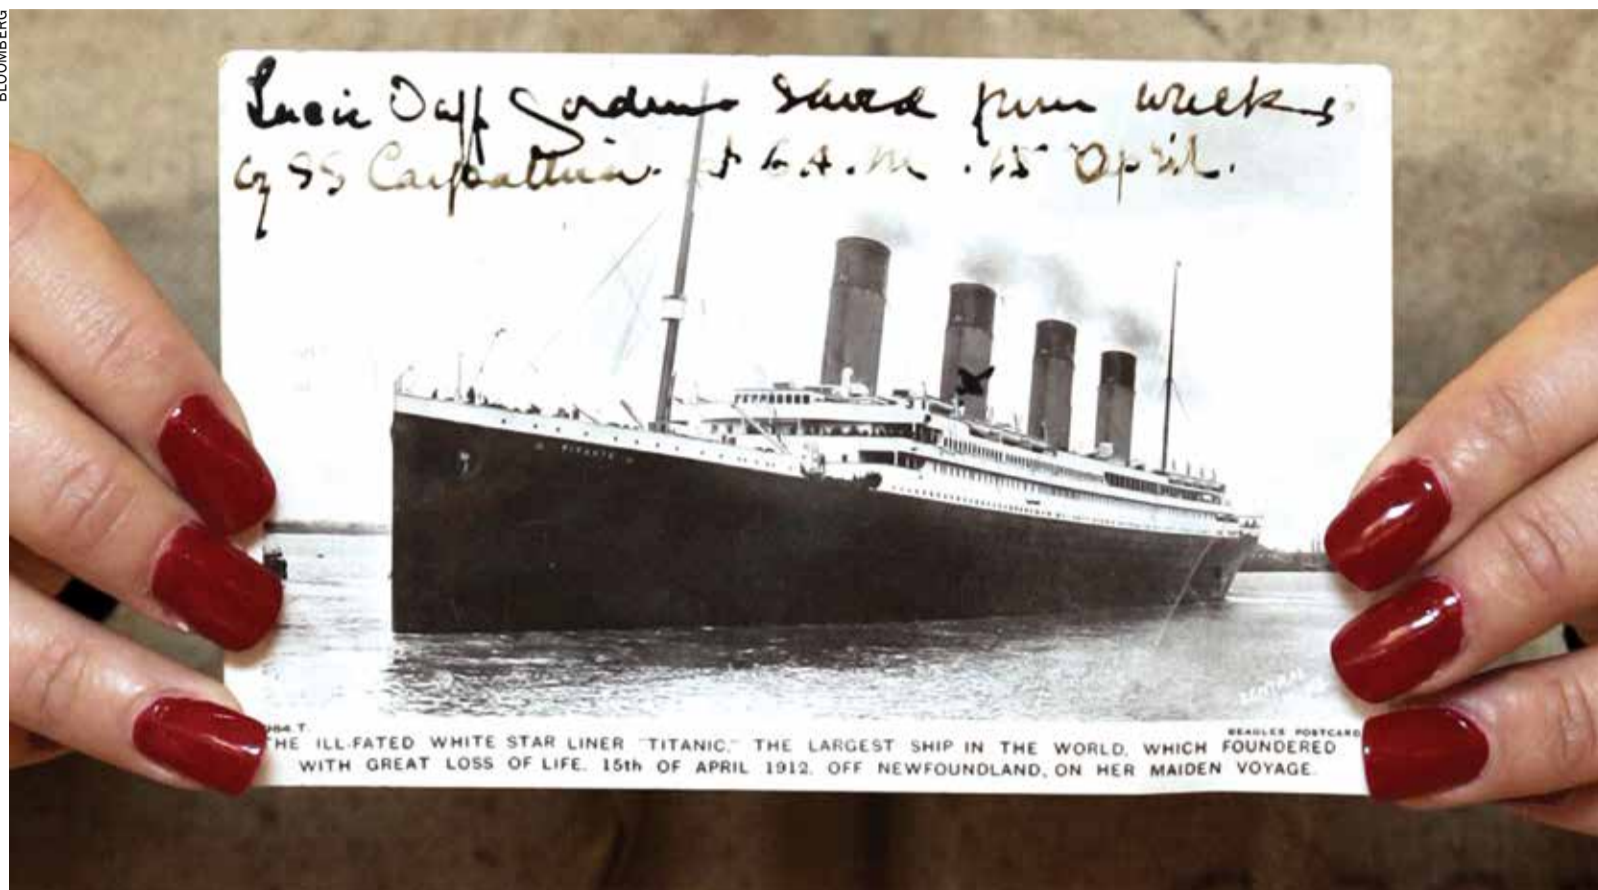 BLOOMBERG
Lucie Duff Gordon saved from wreck
by SS Carpathia. 6 A.M. 15 April.
TITANIC
THE ILL-FATED WHITE STAR LINER "TITANIC," THE LARGEST SHIP IN THE WORLD, WHICH FOUNDERED
WITH GREAT LOSS OF LIFE, 15th OF APRIL 1912, OFF NEWFOUNDLAND, ON HER MAIDEN VOYAGE.
BEAGLES POSTCARD